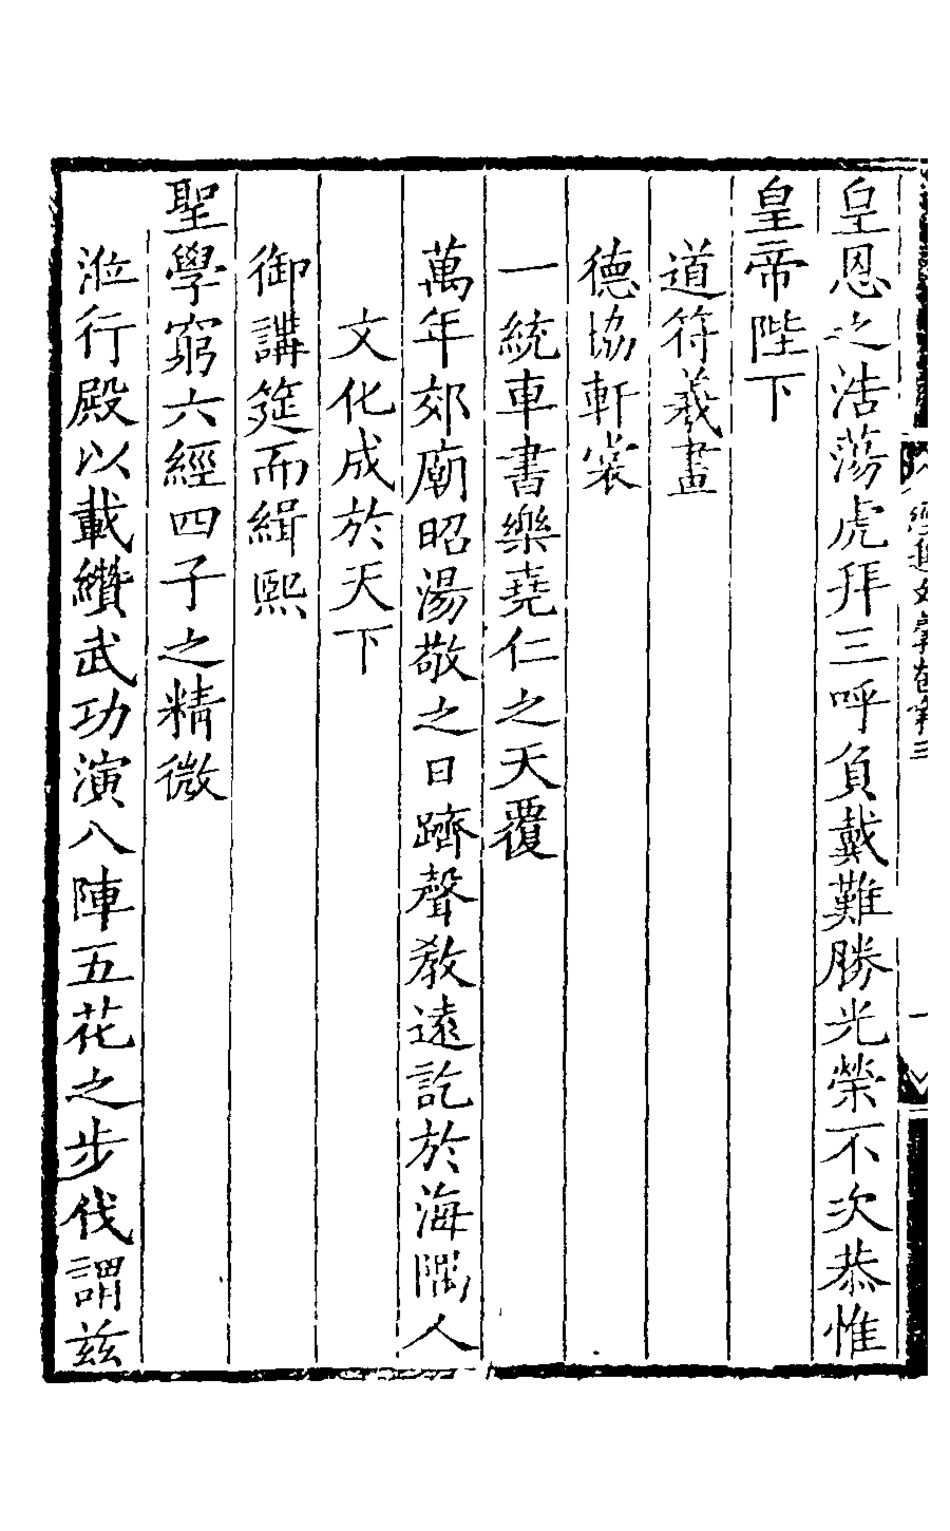 皇恩之浩蕩虎拜三呼負戴難勝光榮不次恭惟
皇帝陛下
道符羲畫
德協軒裳
一統車書樂堯仁之天覆
萬年郊廟昭湯敬之日躋聲教遠訖於海隅人
文化成於天下
御講筵而緝熙
聖學窮六經四子之精微
涖行殿以載纘武功演八陣五花之步伐謂兹